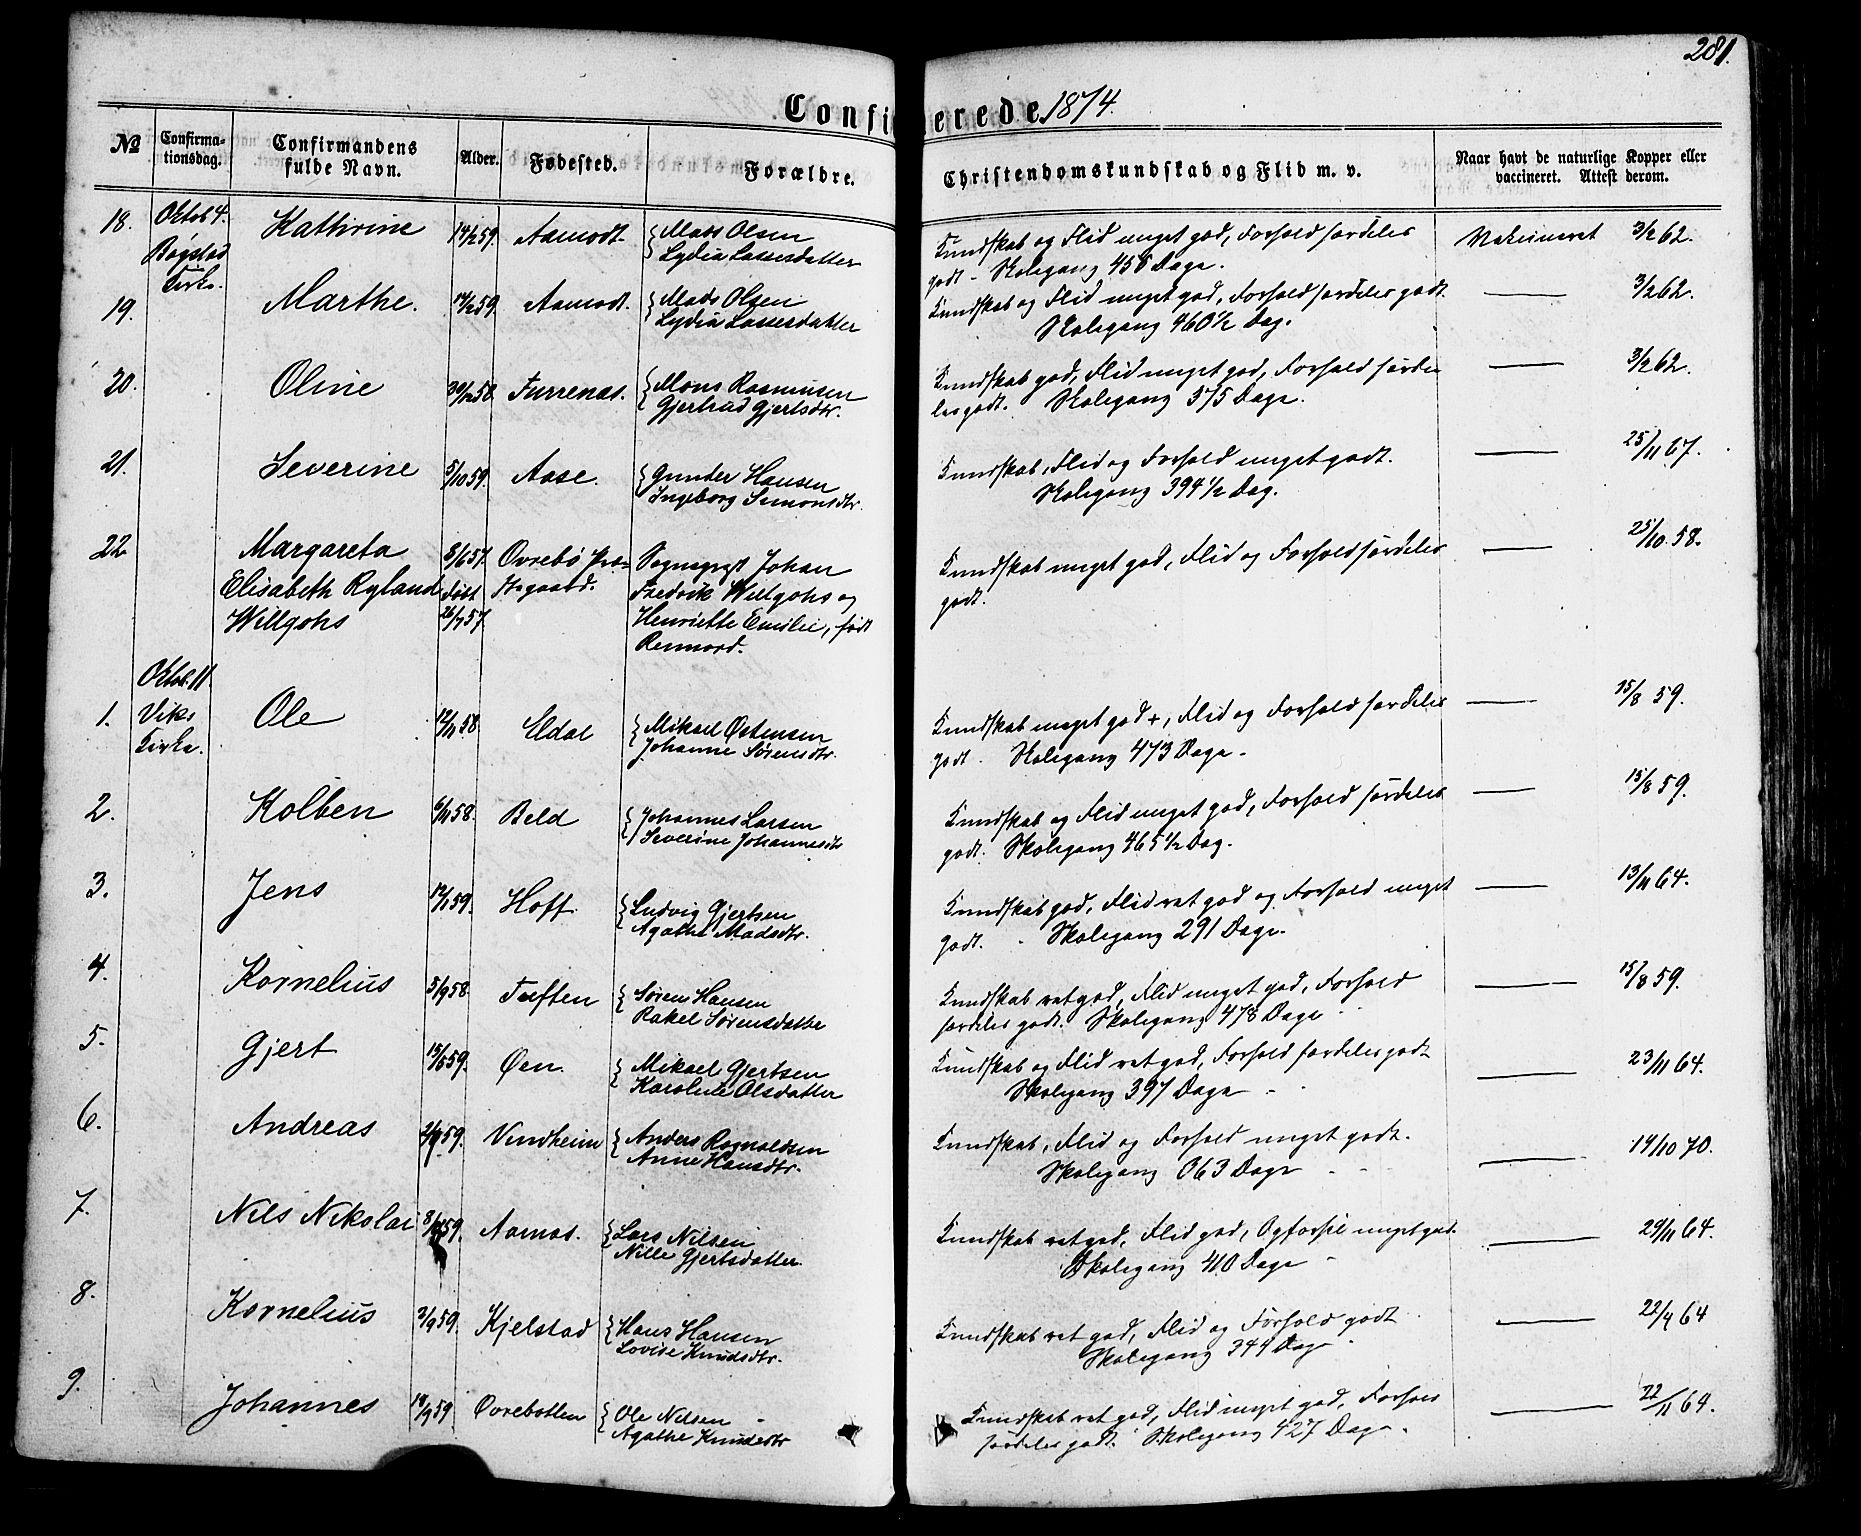 281.
Confirmerede 1874.
№ Confirmationsdag. Confirmandens fulde Navn. Alder. Fødested. Forældre. Christendomskundskab og Flid m. v. Naar havt de naturlige Kopper eller vaccineret. Attest derom.
18. Oktob 4. Bogstad Kirke. Kathrine 14/2 59. Aamodt. Mads Olsen
Lydia Lassesdatter
Kundskab og Flid meget god, Forhold særdeles
godt - Skolegang 458 Dage. Vakcineret 3/2 62.
19. Marthe. 14/2 59. Aamodt. Mads Olsen
Lydia Lassesdatter
Kundskab og Flid meget god, Forhold særdeles godt.
Skolegang 460 1/2 Dag. — 3/2 62.
20. Oline 30/12 58. Furrenæs. Mons Rasmusen
Gjertrud Gjertsdtr.
Kundskab god, Flid meget god, Forhold særde
les godt. Skolegang 375 Dage. — 3/2 62.
21. Severine 5/10 59. Aase. Gunder Hansen
Ingeborg Simonsdtr.
Kundskab, Flid og Forhold meget godt.
Skolegang 394 1/2 Dag. — 25/11 67.
22 Margareta 3/6 57. Øvrebø Præ-
Elisabeth Ryland Født stegaard.
Willgohs 26/7 57.
Sogneprest Johan
Fredrik Willgohs og
Henriette Emilie, født
Rennord.
Kundskab meget god, Flid og Forhold særdeles
godt. — 25/10 58.
1. Oktob. 11. Viks Kirke. Ole 12/11 58. Eldal Mikael Østensen
Johanne Sørensdtr.
Kundskab meget god +, Flid og Forhold særdeles
godt. Skolegang 473 Dage - — 15/8 59.
2. Kolben 6/11 58. Beld Johannes Larsen
Severine Johannesdtr
Kundskab og Flid meget god, Forhold særdeles
godt. Skolegang 465 1/2 Dag. — 15/8 59.
3. Jens 12/1 59. Hoff. Ludvig Gjertsen
Agathe Madsdtr.
Kundskab god, Flid ret god og Forhold meget
godt. - Skolegang 291 Dage. — 13/11 64.
4. Kornelius 5/9 58. Tæften Søren Hansen
Rakel Sørensdatter
Kundskab ret god, Flid meget god, Forhold
særdeles godt. Skolegang 478 Dage — 15/8 59.
5. Gjert 15/5 59. Øen. Mikael Gjertsen
Karoline Olsdatter
Kundskab og Flid ret god, Forhold særdeles godt
Skolegang 397 Dage - — 23/11 64.
6. Andreas 2/9 59. Vindheim Anders Rognaldsen
Anne Hansdtr.
Kundskab, Flid og Forhold meget godt.
Skolegang 363 Dage - — 14/10 70.
7. Nils Nikolai 59. Aarnæs. Lars Nilsen
Nille Gjertsdatter.
Kundskab ret god, Flid god, Opførsel meget god.
Skolegang 410 Dage - — 29/11 64.
8. Kornelius 3/9 59. Kjelstad Hans Hansen
Lovise Knudsdtr.
Kundskab ret god, Flid og Forhold godt
Skolegang 344 Dage — 22/4 64
9. Johannes 14/9 59 Øvrebotten Ole Nilsen
Agathe Knudsdtr
Kundskab ret god, Flid meget god, Forhold
særdeles godt. Skolegang 427 Dage. — 22/11 64.